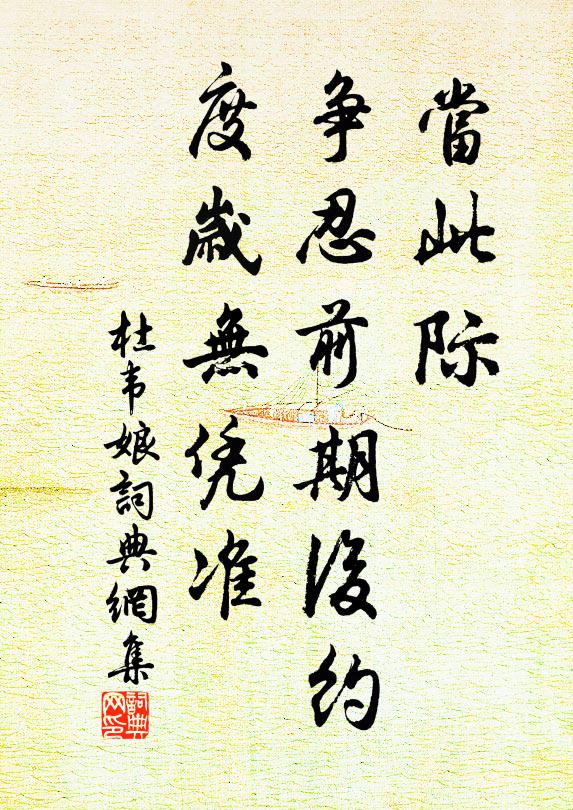 當此际
争忍前期後约
度歲無凭准
杜韦娘詞典網集
詞典网印